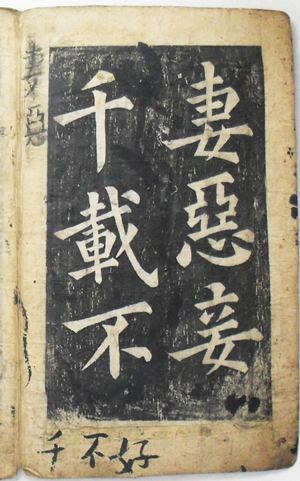 妻惡妾
千載不
千不好